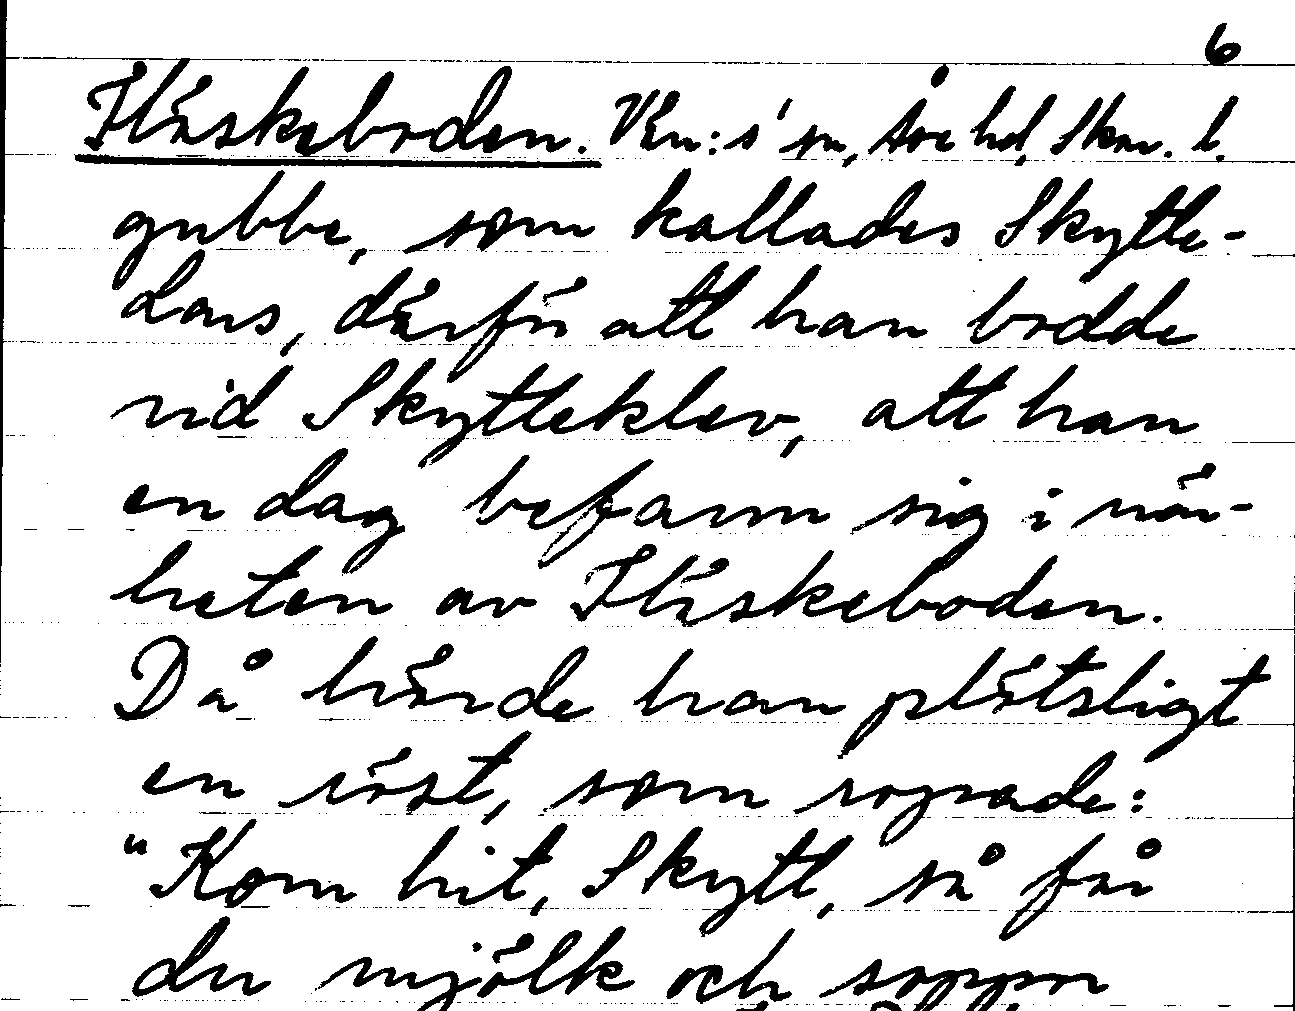 6
Fläskeboden. Vän:s' sn, Åse hd, Skar. l.
gubbe, som kallades Skytte-
Lars, därför att han bodde
vid Skytteklev, att han
en dag befann sig i när-
heten av Fläskeboden.
Då hörde han plötsligt
en röst, som ropade:
"Kom hit, Skytt, så får
du mjölk och soppor